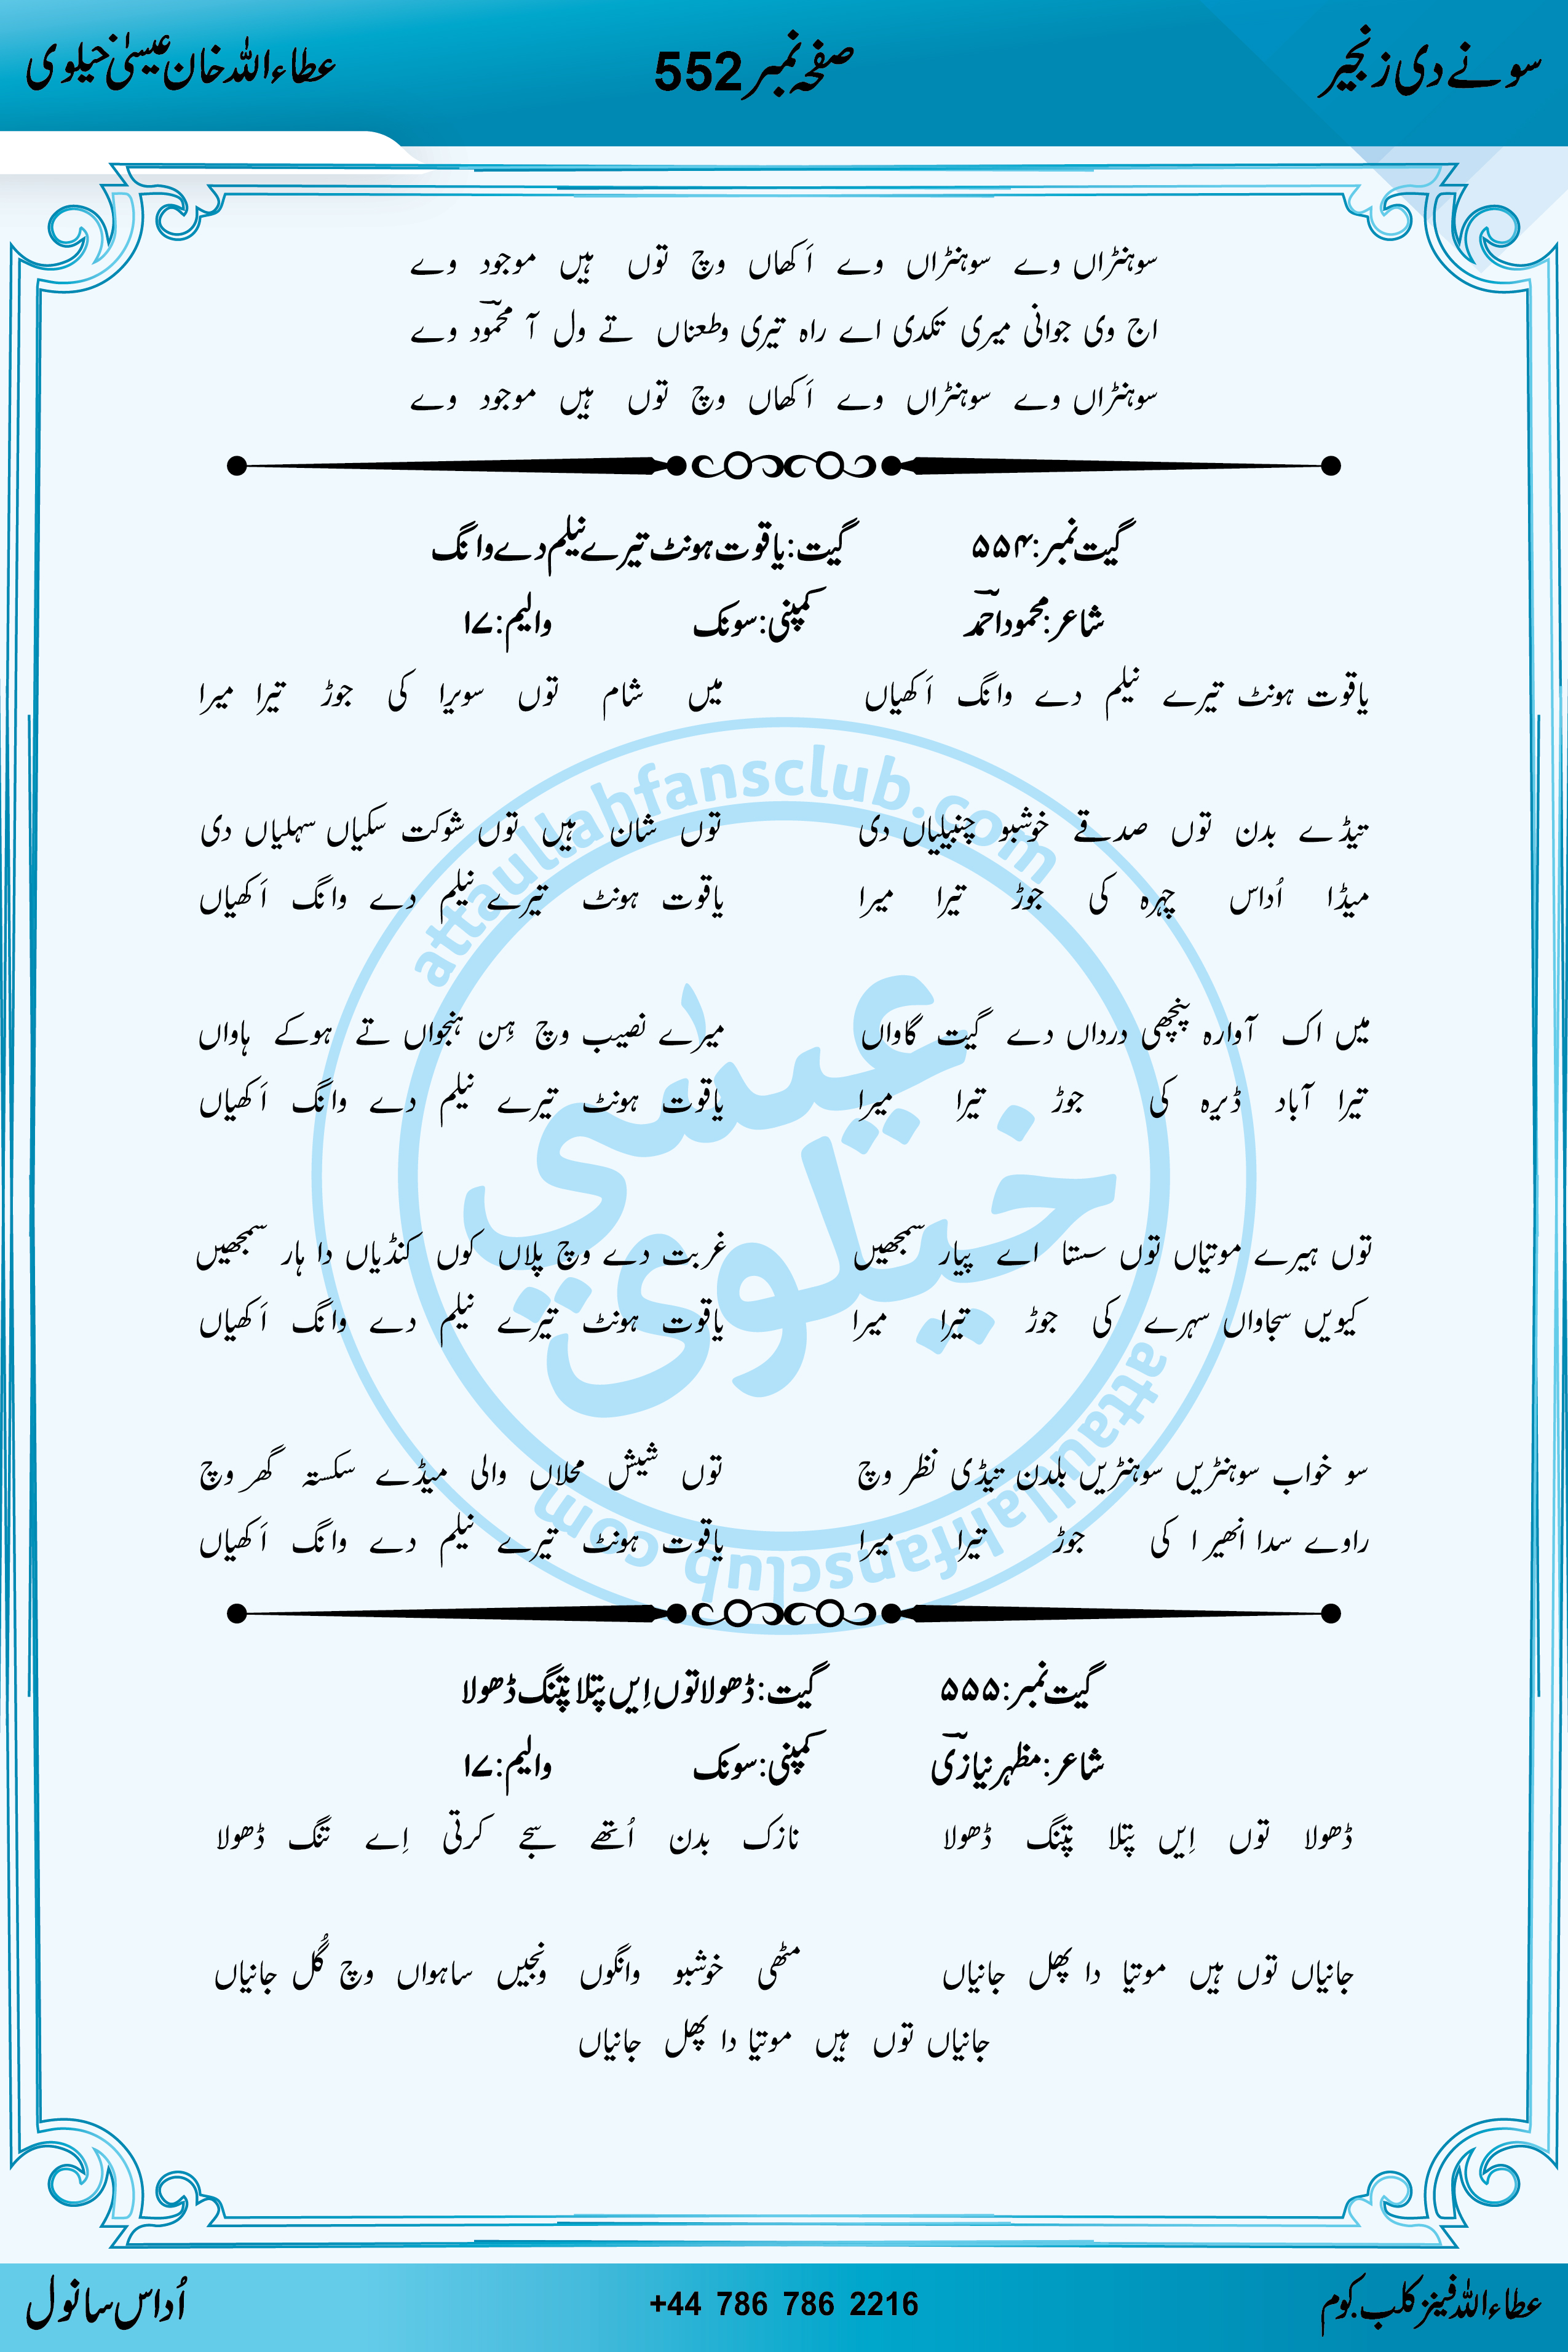 سونے دی زنجیر صفحہ نمبر 552 عطاءاللہ خان عیسیٰ خیلوی
سوہنڑاں وے سوہنڑاں وے اَکھاں وچ توں ہیں موجود وے
اج وی جوانی میری تکدی اے راہ تیری وطعناں تے ول آ محمودؔ وے
سوہنڑاں وے سوہنڑاں وے اَکھاں وچ توں ہیں موجود وے
گیت نمبر:۵۵۴ گیت:یاقوت ہونٹ تیرے نیلم دے وانگ
شاعر:محمود احمدؔ کمپنی:سونک والیم:۱۷
یاقوت ہونٹ تیرے نیلم دے وانگ اَکھیاں میں شام توں سویرا کی جوڑ تیرا میرا
تیڈے بدن توں صدقے خوشبو چنبیلیاں دی توں شان ہیں توں شوکت سکیاں سہلیاں دی
میڈا اُداس چہرہ کی جوڑ تیرا میرا یاقوت ہونٹ تیرے نیلم دے وانگ اَکھیاں
میں اک آوارہ پنچھی درداں دے گیت گاواں میرے نصیب وچ ہِن ہنجواں تے ہوکے ہاواں
تیرا آباد ڈیرہ کی جوڑ تیرا میرا یاقوت ہونٹ تیرے نیلم دے وانگ اَکھیاں
توں ہیرے موتیاں توں سستا اے پیار سمجھیں غربت دے وچ پلاں کوں کنڈیاں دا ہار سمجھیں
کیویں سجاواں سہرے کی جوڑ تیرا میرا یاقوت ہونٹ تیرے نیلم دے وانگ اَکھیاں
سو خواب سوہنڑیں سوہنڑیں بلدن تیڈی نظر وچ توں شیش محلاں والی میڈے سکستہ گھر وچ
راوے سدا انھیر ا کی جوڑ تیرا میرا یاقوت ہونٹ تیرے نیلم دے وانگ اَکھیاں
گیت نمبر:۵۵۵ گیت:ڈھولا توں اِیں پتلا پتنگ ڈھولا
شاعر:مظہر نیازیؔ کمپنی:سونک والیم:۱۷
ڈھولا توں اِیں پتلا پتنگ ڈھولا نازک بدن اُتھے سجے کرتی اِے تنگ ڈھولا
جانیاں توں ہیں موتیا دا پھل جانیاں مٹھی خوشبو وانگوں ونجیں ساہواں وچ گُل جانیاں
جانیاں توں ہیں موتیا دا پھل جانیاں
attaullahfansclub.com
عیسٰی
خیلوی
attaullahfansclub.com
عطاءاللہ فینز کلب.کوم +44 786 786 2216 اُداس سانول